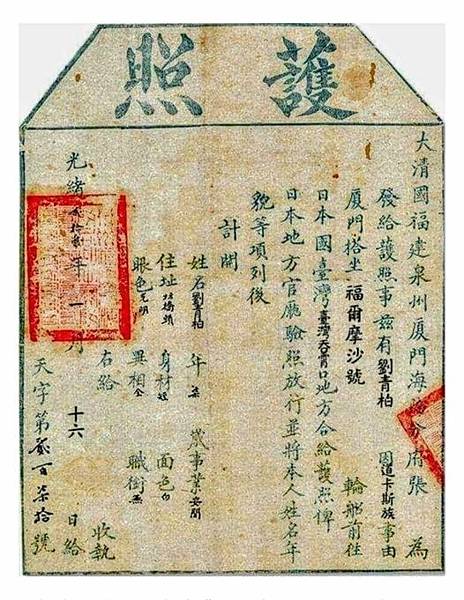 護照
大清國福建泉州厦門海防分府張　為
發給護照事茲有劉青柏　因道卡斯族事由
厦門搭坐福爾摩沙號　輪船前往
日本國臺灣臺灣吞霄口地方合給護照俾
日本地方官廳驗照放行並將本人姓名年
貌等項列後
計開
姓名劉青柏　年　歲事業安閒
住址　身材　面色白
眼色光明　異相全　職銜無
右給　收執
光緒　年一月　十六　日給
天字第貳百柒拾號